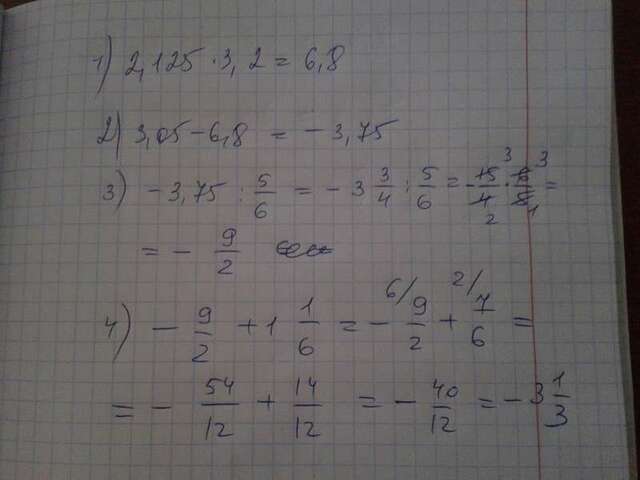 1) 2,125 · 3,2 = 6,8
2) 3,05 - 6,8 = - 3,75
3) - 3,75 : 5/6 = - 3 3/4 : 5/6 = - 15/4 · 6/5 =
= - 9/2
4) - 9/2 + 1 1/6 = - 6/ 9/2 + 2/ 7/6 =
= - 54/12 + 14/12 = - 40/12 = - 3 1/3